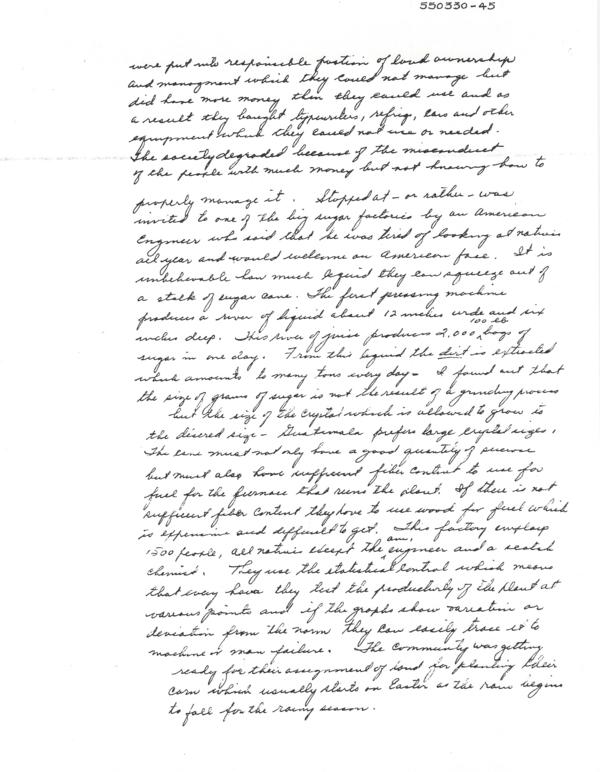 550330-45
were put into responsible position of land ownership
and managment which they could not manage but
did have more money than they could use and as
a result they bought typewriters, refrig, cars and other
equipment which they could not use or needed.
The society degraded because of the misconduct
of the people with much money but not knowing how to
properly manage it. Stopped at - or rather - was
invited to one of the big sugar factories by an American
Engineer who said that he was tired of looking at natives
all year and would welcome an American face. It is
unbelievable how much liquid they can squeeze out of
a stalk of sugar cane. The first pressing machine
produces a river of liquid about 12 inches wide and six
inches deep. This river of juice produces 2,000 100 lb bags of
sugar in one day. From this liquid the dirt is extracted
which amounts to many tons every day - I found out that
the size of grains of sugar is not the result of a grinding process
but the size of the crystal which is allowed to grow to
the desired size - Guatemala prefers large crystal sizes.
The cane must not only have a good quantity of sucrose
but must also have sufficient fiber content to use for
fuel for the furnace that runs the plant. If there is not
sufficient fiber content they have to use wood for fuel which
is expensive and difficult to get. This factory employs
1500 people, all natives except the am. engineer and a scotch
chemist. They use the statistical control which means
that every hour they test the productivity of the plant at
various points and if the graphs show variation or
deviation from the norm they can easily trace it to
machine or man failure. The community was getting
ready for their assignment of land for planting their
corn which usually starts on Easter as the rain begins
to fall for the rainy season.